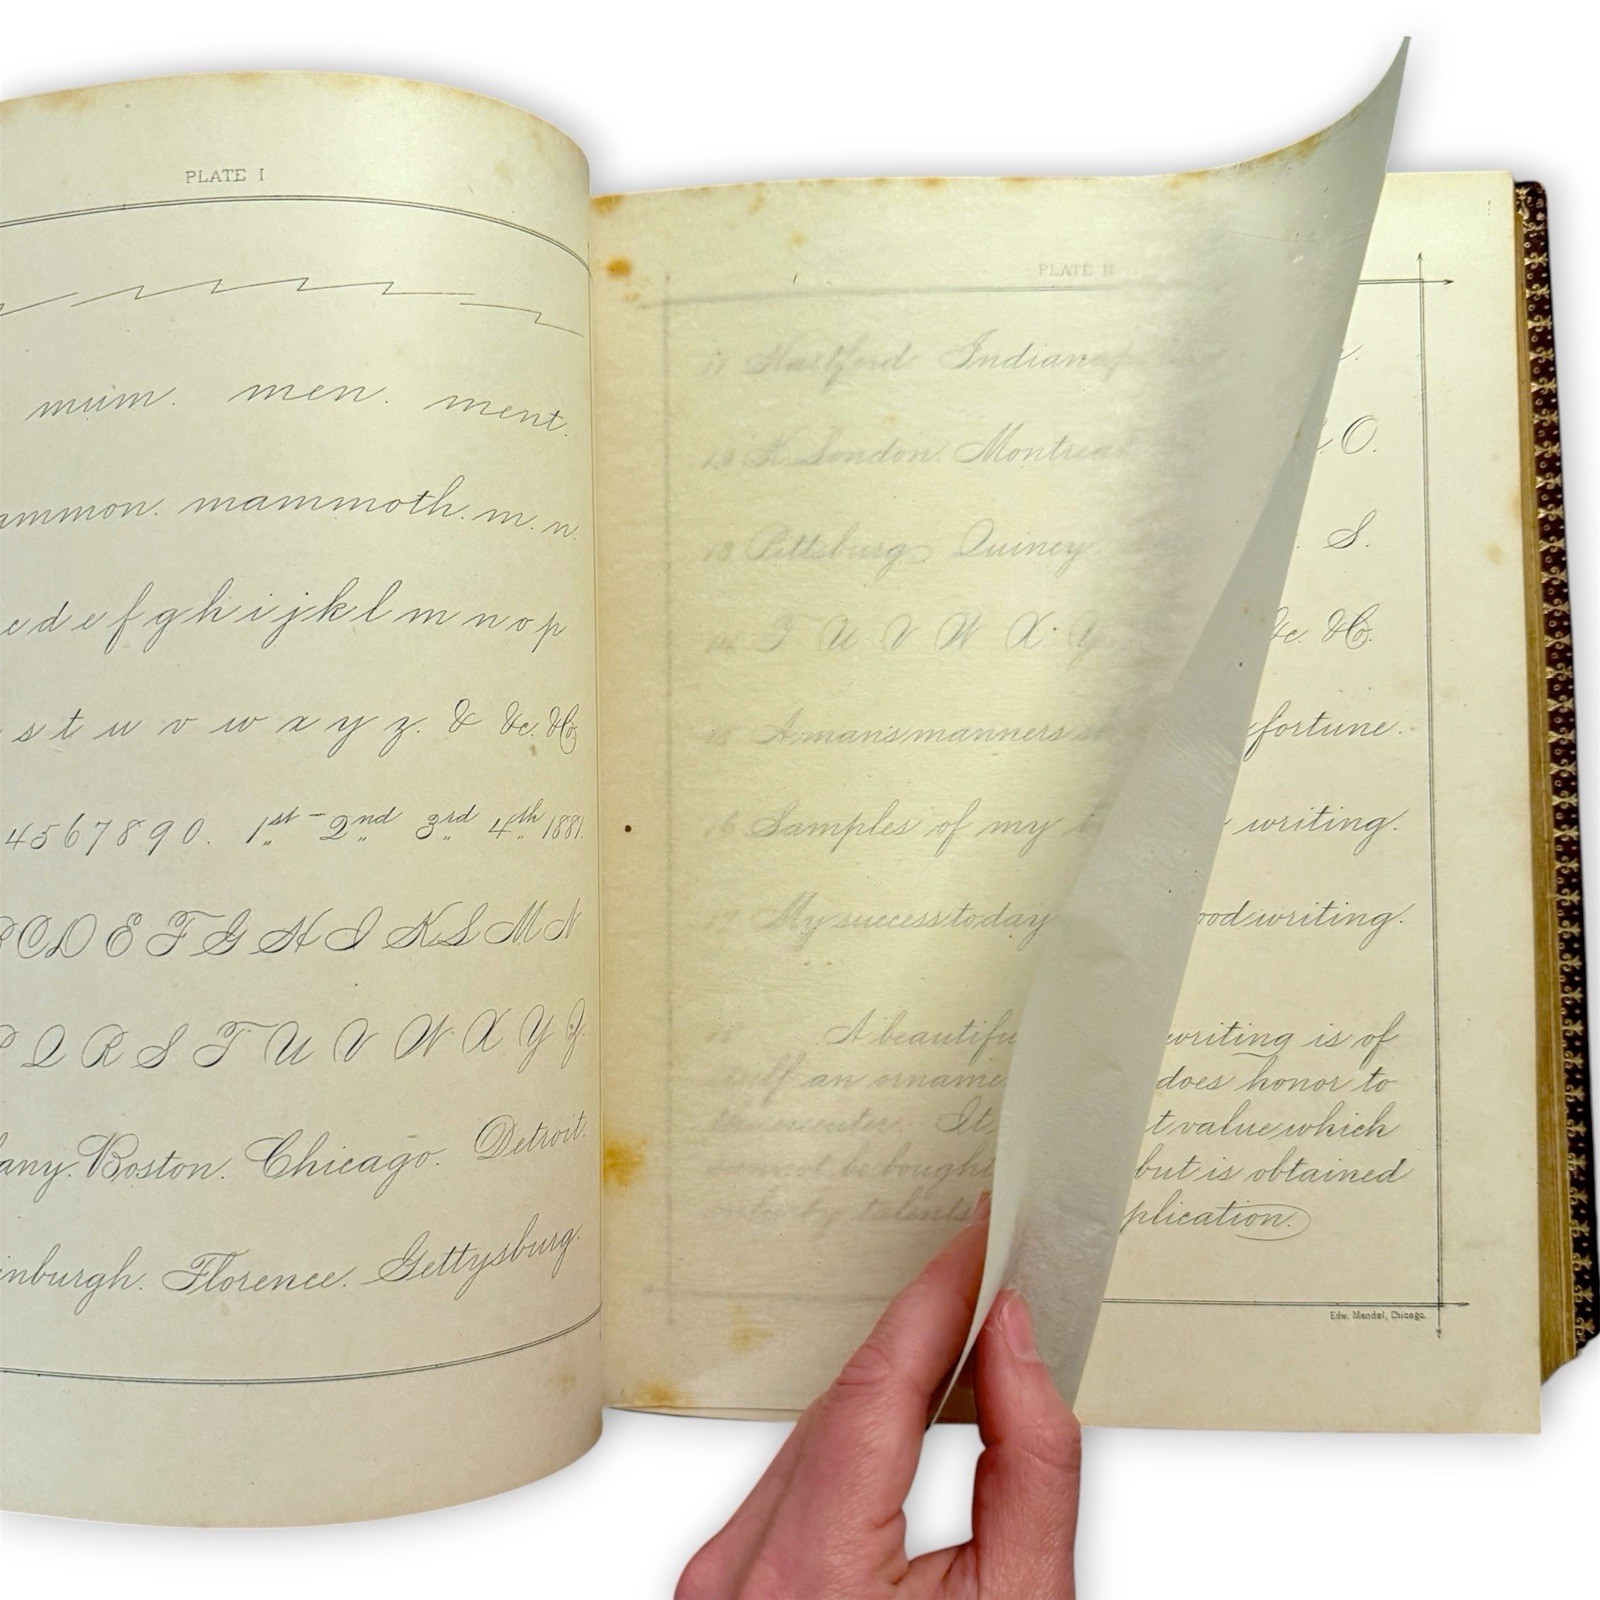 PLATE I
mum. men. ment.
ammon. mammoth. m. n.
c d e f g h i j k l m n o p
s t u v w x y z. & &c. &Co
4 5 6 7 8 9 0. 1st - 2nd 3rd 4th 1881.
C D E F G H I K L M N
P Q R S T U V W X Y Z.
any. Boston. Chicago. Detroit.
inburgh. Florence. Gettysburg.
PLATE II
11 Hartford Indianap
12 K. London. Montreal O.
13 Pittsburg Quincy S.
14 T U V W X Y &c. &Co.
15 A man's manners fortune.
16 Samples of my writing.
17 My success today ood writing.
18 A beautifu writing is of
itself an orname does honor to
the It t value which
cannot be bought but is obtained
only by talents plication.
Edw. Mendel, Chicago.